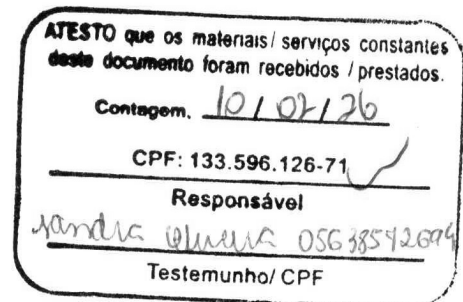 ATESTO que os materiais/ serviços constantes
deste documento foram recebidos / prestados.
Contagem, 10/02/26
CPF: 133.596.126-71
Responsável
Sandra Oliveira 05638542694
Testemunho/ CPF